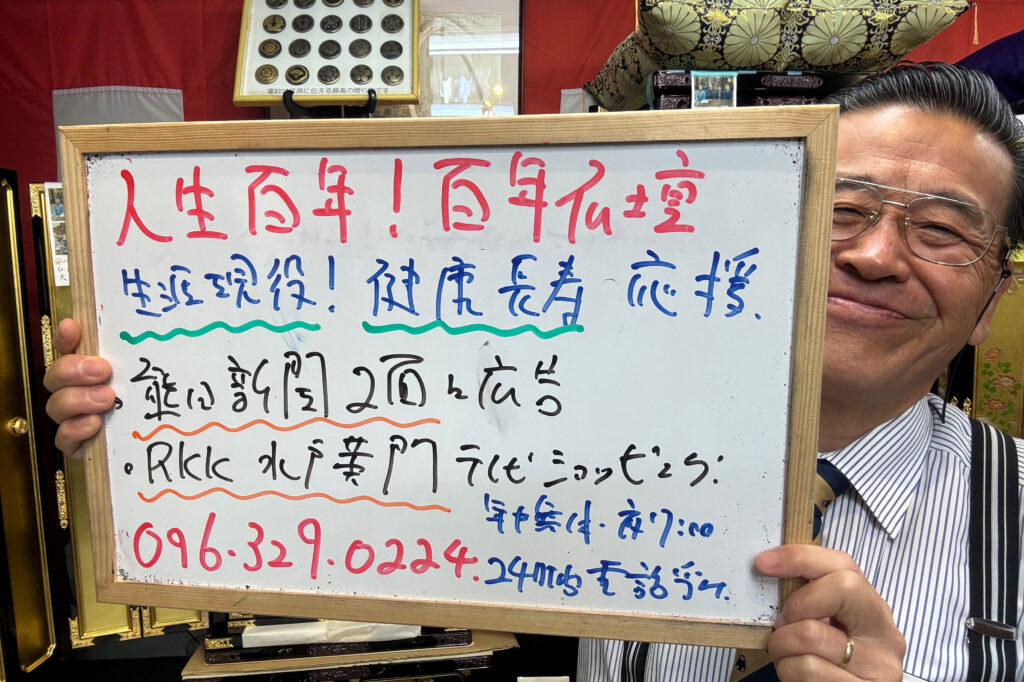 家紋は子孫に伝える最高の贈り物です
人生百年！百年仏壇
生涯現役！健康長寿 応援.
・熊日新聞2面に広告
・RKK水戸黄門テレビショッピング.
年中無休・夜7:00
096.329.0224.
24時間電話受付.